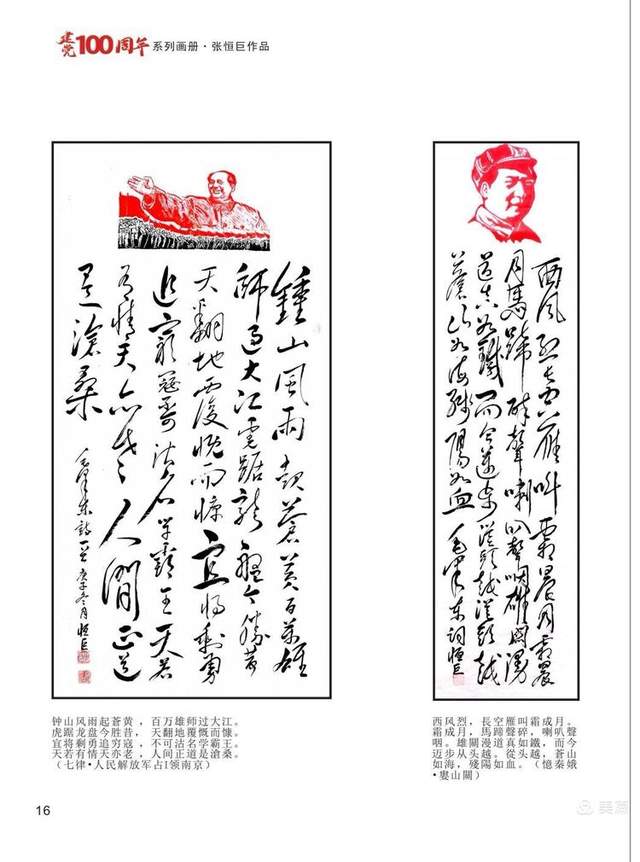 建党100周年 系列画册·张恒巨作品
鍾山風雨起蒼黄百萬雄
師過大江虎踞龍盤今勝昔
天翻地覆慨而慷宜将剩勇
追窮寇不可沽名学霸王天若
有情天亦老人間正道
是滄桑
毛澤東詩一首 庚子冬月恒巨
西风烈长空雁叫霜晨月霜晨
月馬蹄碎聲喇叭聲咽雄関漫
道真如鐵而今邁步從頭越從頭越
蒼山如海殘陽如血毛澤東词恒巨
钟山风雨起蒼黄，百万雄师过大江。
虎踞龙盘今胜昔， 天翻地覆慨而慷。
宜将剩勇追穷寇，不可沽名学霸王。
天若有情天亦老，人间正道是滄桑。
（七律•人民解放军占I领南京）
西风烈，長空雁叫霜成月。
霜成月，馬蹄聲碎，喇叭聲
咽。雄關漫道真如鐵，而今
迈步从头越。從头越，蒼山
如海，殘陽如血。（憶秦娥
•婁山關）
16
美篇